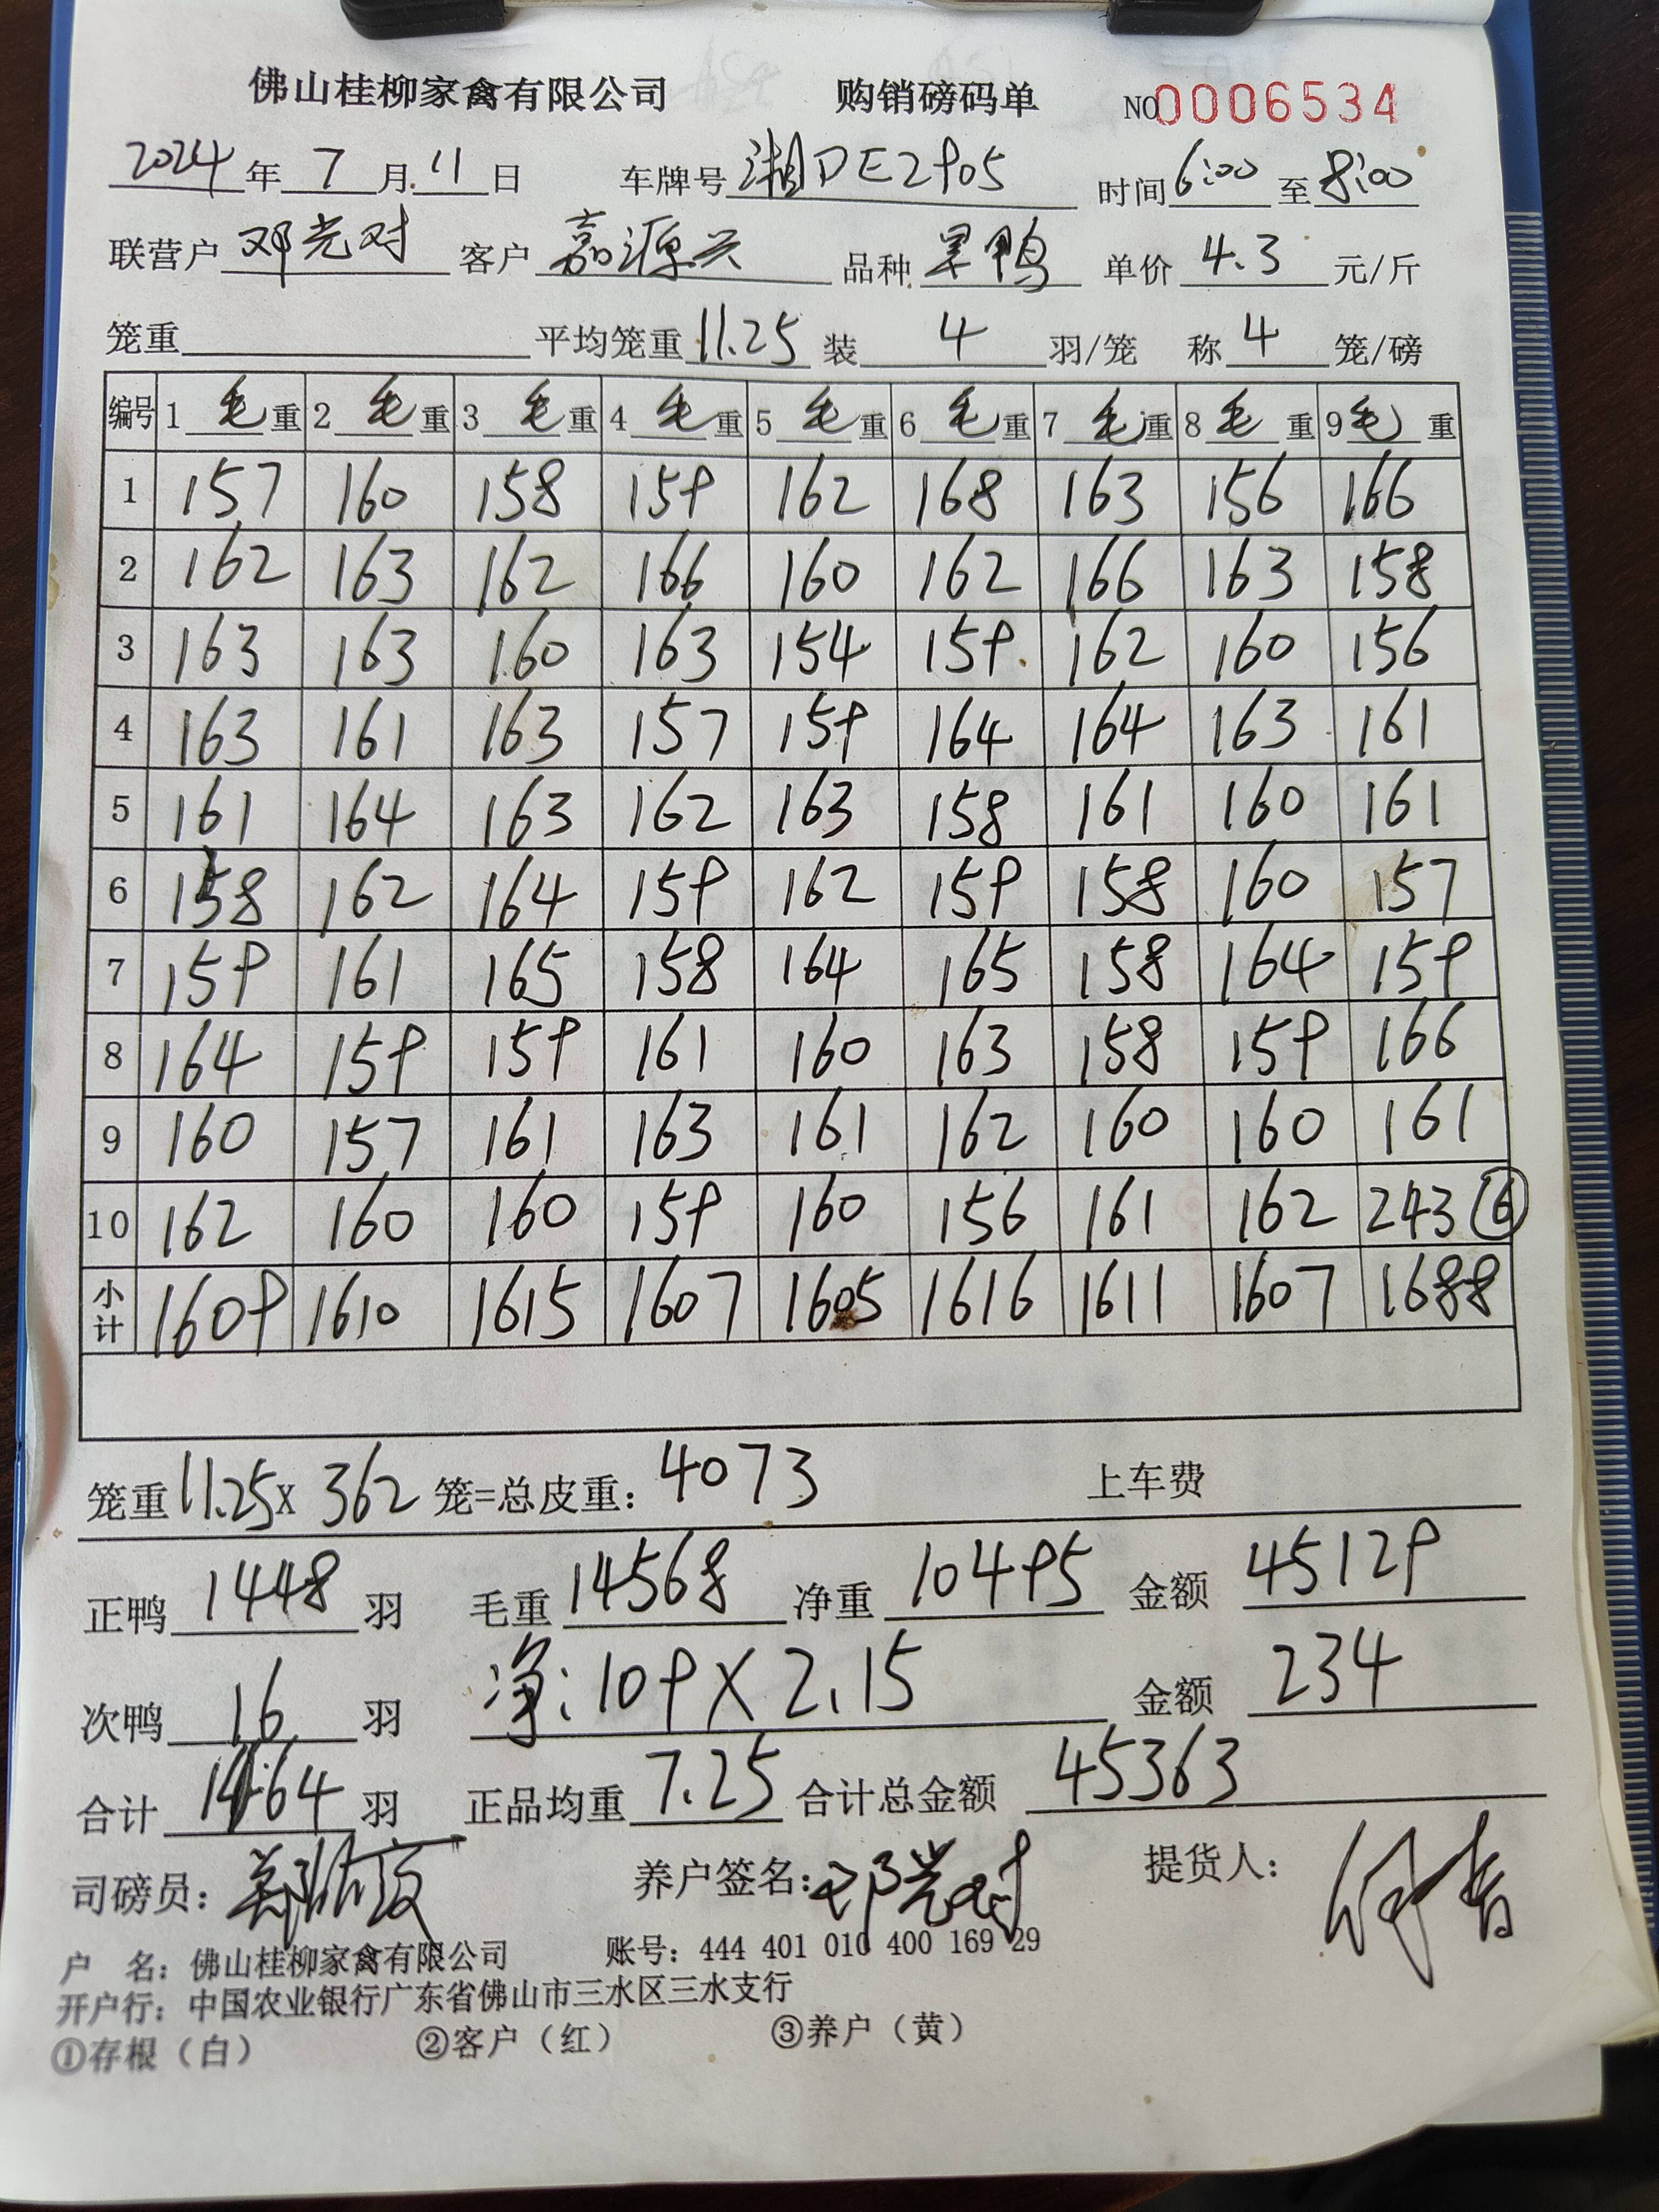 佛山桂柳家禽有限公司 购销磅码单 NO0006534
2024年7月11日 车牌号湘DE2905 时间6:00至8:00
联营户邓光对 客户嘉源兴 品种 鸭 单价4.3元/斤
笼重 平均笼重11.25装4羽/笼 称4笼/磅
编号 1毛重 2毛重 3毛重 4毛重 5毛重 6毛重 7毛重 8毛重 9毛重
1 157 160 158 159 162 168 163 156 166
2 162 163 162 166 160 162 166 163 158
3 163 163 160 163 154 159 162 160 156
4 163 161 163 157 159 164 164 163 161
5 161 164 163 162 163 158 161 160 161
6 158 162 164 159 162 159 158 160 157
7 159 161 165 158 164 165 158 164 159
8 164 159 159 161 160 163 158 159 166
9 160 157 161 163 161 162 160 160 161
10 162 160 160 159 160 156 161 162 243⑥
小计 1609 1610 1615 1607 1605 1616 1611 1607 1688
笼重11.25x362笼=总皮重：4073 上车费
正鸭1448羽 毛重14568净重10495 金额45129
次鸭16羽 净：109X2.15 金额234
合计1464羽 正品均重7.25合计总金额45363
司磅员： 养户签名：邓光对 提货人：
户 名：佛山桂柳家禽有限公司 账号：444 401 010 400 169 29
开户行：中国农业银行广东省佛山市三水区三水支行
①存根（白） ②客户（红） ③养户（黄）